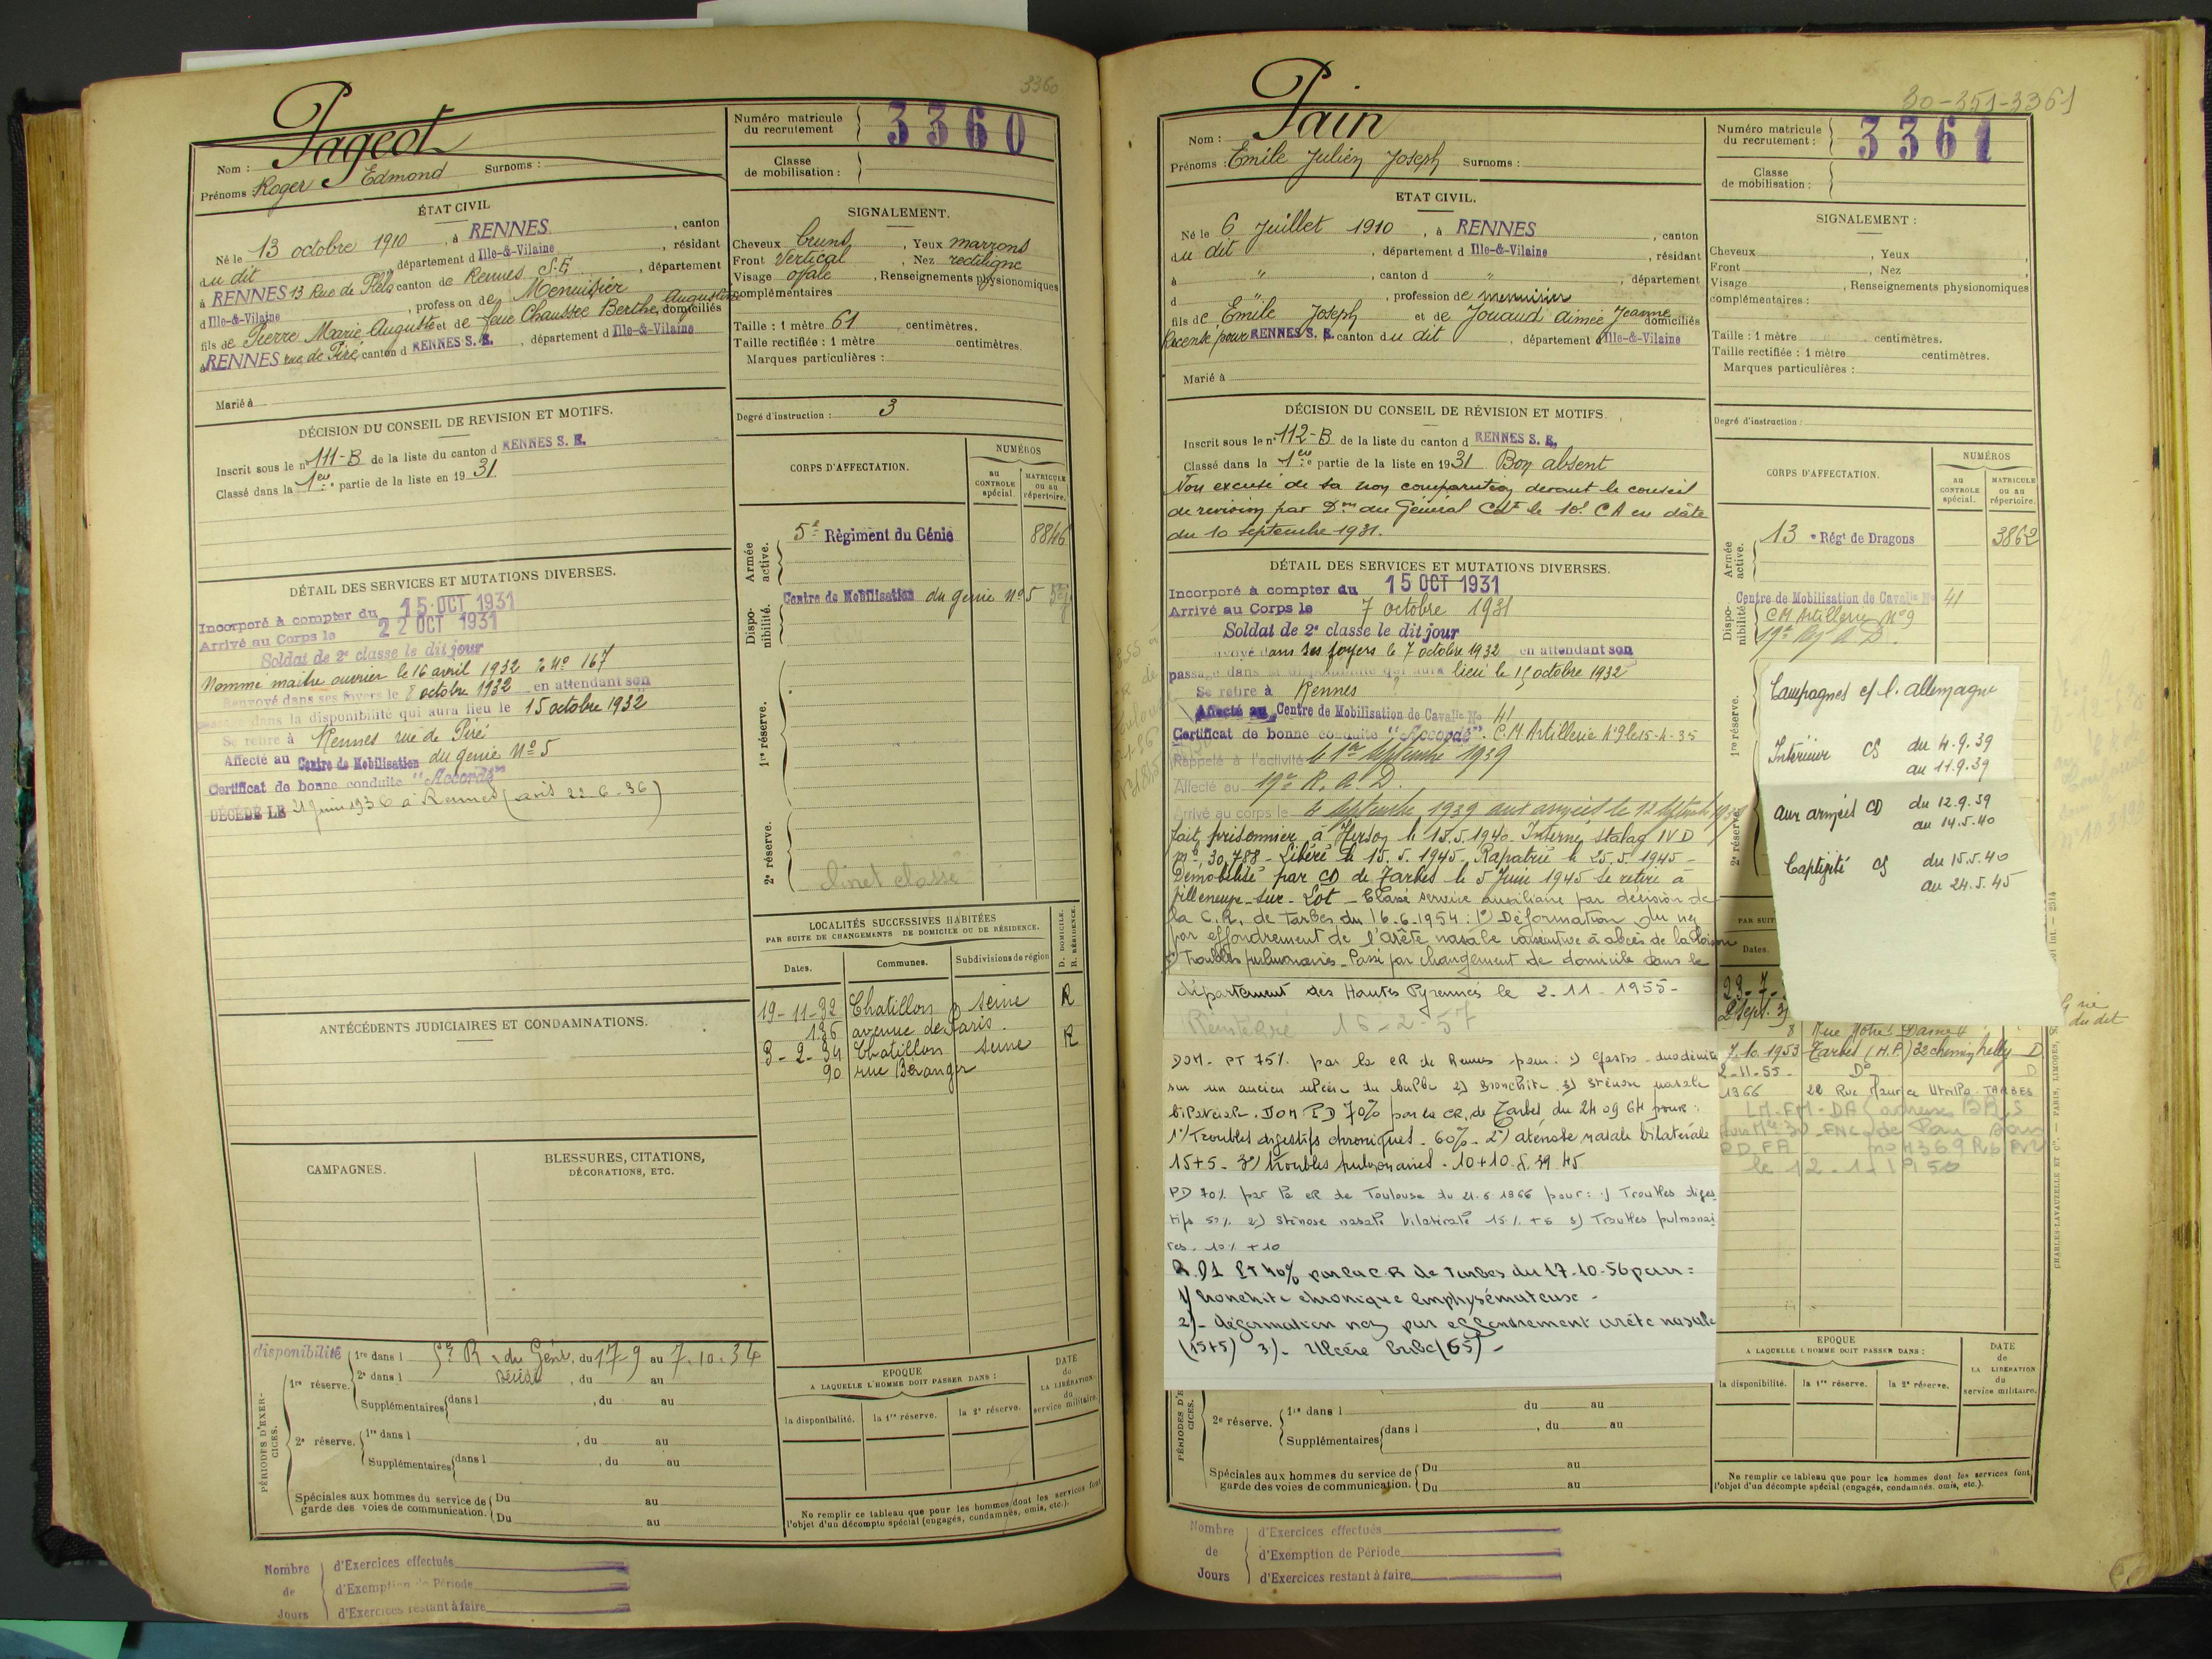 3360
Pageot
Nom :
Prénoms : Roger Edmond Surnoms :
Numéro matricule du recrutement 3360
Classe de mobilisation :
ÉTAT CIVIL
Né le 13 octobre 1910, à RENNES, canton
du dit, département d Ille-&-Vilaine, résidant
à RENNES 13 Rue de canton de Rennes S.E, département
d Ille-&-Vilaine, profession de Menuisier
fils de Pierre Marie Auguste et de feue Chaussée Berthe, Augustine domiciliés
à RENNES rue de Piré canton d RENNES S. E., département d Ille-&-Vilaine
Marié à
SIGNALEMENT.
Cheveux bruns, Yeux marrons
Front Vertical, Nez rectiligne
Visage ovale, Renseignements physionomiques
complémentaires
Taille : 1 mètre 61 centimètres.
Taille rectifiée : 1 mètre centimètres.
Marques particulières :
Degré d'instruction : 3
DÉCISION DU CONSEIL DE REVISION ET MOTIFS.
Inscrit sous le n° 111-B de la liste du canton d RENNES S. E.
Classé dans la 1ère partie de la liste en 1931
CORPS D'AFFECTATION.
NUMÉROS
au CONTROLE spécial.
MATRICULE ou au répertoire.
Armée active.
5e Régiment du Génie 8846
Dispo-nibilité.
Centre de Mobilisation du génie N°5
1re réserve.
2e réserve.
DÉTAIL DES SERVICES ET MUTATIONS DIVERSES.
Incorporé à compter du 15 OCT 1931
Arrivé au Corps le 22 OCT 1931
Soldat de 2e classe le dit jour
Nommé maître ouvrier le 16 avril 1932 N° 167
Renvoyé dans ses foyers le 8 octobre 1932 en attendant son
passage dans la disponibilité qui aura lieu le 15 octobre 1932
Se retire à Rennes rue de Piré
Affecté au Centre de Mobilisation du génie N°5
Certificat de bonne conduite "Accordé"
DÉCÉDÉ LE 21 juin 1936 à Rennes (avis 22-6-36)
classé
LOCALITÉS SUCCESSIVES HABITÉES
PAR SUITE DE CHANGEMENTS DE DOMICILE OU DE RÉSIDENCE.
Dates. Communes. Subdivisions de région
D. DOMICILE. R. RÉSIDENCE.
19-11-32 Chatillon Seine R
136 avenue de Paris.
3-2-34 Chatillon Seine R
90 rue Béranger
ANTÉCÉDENTS JUDICIAIRES ET CONDAMNATIONS.
CAMPAGNES.
BLESSURES, CITATIONS, DÉCORATIONS, ETC.
PÉRIODES D'EXERCICES.
disponibilité
1re réserve. 1re dans l 5e R. du Génie, du 17-9 au 7-10-34
2e dans l , du au
Supplémentaires dans l , du au
2e réserve. 1re dans l , du au
Supplémentaires dans l , du au
Spéciales aux hommes du service de garde des voies de communication.
Du au
Du au
EPOQUE
A LAQUELLE L'HOMME DOIT PASSER DANS :
la disponibilité. la 1re réserve. la 2e réserve.
DATE de LA LIBÉRATION du service militaire.
Ne remplir ce tableau que pour les hommes dont les services font
l'objet d'un décompte spécial (engagés, condamnés, omis, etc.).
Nombre de Jours
d'Exercices effectués
d'Exemption de Période
d'Exercices restant à faire
30-351-3361
Pain
Nom :
Prénoms : Emile Julien Joseph Surnoms :
Numéro matricule du recrutement : 3361
Classe de mobilisation :
ETAT CIVIL.
Né le 6 Juillet 1910, à RENNES, canton
du dit, département d Ille-&-Vilaine, résidant
à ", canton d ", département
d ", profession de menuisier
fils de Emile Joseph et de Jouaud Aimée Jeanne domiciliés
Recensé pour RENNES S. E. canton du dit, département d Ille-&-Vilaine
Marié à
SIGNALEMENT :
Cheveux , Yeux
Front , Nez
Visage , Renseignements physionomiques
complémentaires :
Taille : 1 mètre centimètres.
Taille rectifiée : 1 mètre centimètres.
Marques particulières :
Degré d'instruction :
DÉCISION DU CONSEIL DE RÉVISION ET MOTIFS.
Inscrit sous le n° 112-B de la liste du canton d RENNES S. E.
Classé dans la 1ère partie de la liste en 1931 Bon absent
Non excusé de sa non comparution devant le conseil
de revision par Don du Général Cdt le 10e CA en date
du 10 septembre 1931.
CORPS D'AFFECTATION.
NUMÉROS
au CONTROLE spécial.
MATRICULE ou au répertoire.
Armée active.
13e Régt de Dragons 3862
Dispo-nibilité.
Centre de Mobilisation de Cavalie No 41
C M Artillerie N°9
19e R A D.
1re réserve.
2e réserve
DÉTAIL DES SERVICES ET MUTATIONS DIVERSES.
Incorporé à compter du 15 OCT 1931
Arrivé au Corps le 7 octobre 1931
Soldat de 2e classe le dit jour
envoyé dans ses foyers le 7 octobre 1932 en attendant son
passage dans la disponibilité qui aura lieu le 15 octobre 1932
Se retire à Rennes ?
Affecté au Centre de Mobilisation de Cavalie No 41
Certificat de bonne conduite "Accordé". C.M. Artillerie N°9 le 15-4-35
Rappelé à l'activité le 1er Septembre 1939
Affecté au 19e R. A. D.
Arrivé au corps le 4 Septembre 1939 aux armées le 12 septembre 1939
fait prisonnier à Herson le 15.5.1940. Interné stalag IV D
n° 30.788 - Libéré le 15.5.1945. Rapatrié le 25.5.1945 -
Démobilisé par CD de Tarbes le 5 Juin 1945 se retire à
Villeneuve-sur-Lot - Classé service auxiliaire par décision de
la C.R. de Tarbes du 16-6-1954 : 1° Déformation du nez
par effondrement de l'arête nasale consécutive à abcès de la cloison
2° Troubles pulmonaires - Passé par changement de domicile dans le
département des Hautes Pyrennées le 2-11-1955-
16-2-57
DOM. PT 75% par la CR de Rennes pour : 1) Gastro-duodénite
sur un ancien ulcère du bulbe 2) Bronchite 3) sténose nasale
bilatérale. DOM PD 70% par la CR. de Tarbes du 24 09 64 pour :
1°/ Troubles digestifs chroniques - 60% - 2°) sténose nasale bilatérale
15+5 - 3°) troubles pulmonaires - 10+10
PD 70% par la CR de Toulouse du 21-6-1966 pour : 1) Troubles diges-
tifs 2) Sténose nasale bilatérale 15% +5 3) Troubles pulmonai-
res. 10% +10
R.D1 PT 40% par la C.R de Tarbes du 17-10-56 pour :
1) bronchite chronique emphysémateuse -
2) - déformation nez par effondrement arête nasale
(15+5) 3) - Ulcère bulbe (65) -
Campagnes c/ l. allemagne
Intérieur CS du 4.9.39
au 11.9.39
aux armées CD du 12.9.39
au 14.5.40
Captivité CS du 15.5.40
au 24.5.45
PAR SUIT
Dates.
23-7-
2 Sept. 3
8 Rue Notre Dame
7.10.1953 Tarbes (H.P.) 32 chemin D
2-11-55- D° D
1966 22 Rue Maurice Utrillo - TARBES
le 12-1-1950
rue
du dit
PÉRIODES D'EXERCICES.
2e réserve. 1re dans l du au
Supplémentaires dans l , du au
Spéciales aux hommes du service de garde des voies de communication.
Du au
Du au
EPOQUE
A LAQUELLE L'HOMME DOIT PASSER DANS :
la disponibilité. la 1re réserve. la 2e réserve.
DATE de LA LIBÉRATION du service militaire.
Ne remplir ce tableau que pour les hommes dont les services font
l'objet d'un décompte spécial (engagés, condamnés, omis, etc.).
CHARLES-LAVAUZELLE ET Cie. — PARIS, LIMOGES,
Nombre de Jours
d'Exercices effectués
d'Exemption de Période
d'Exercices restant à faire